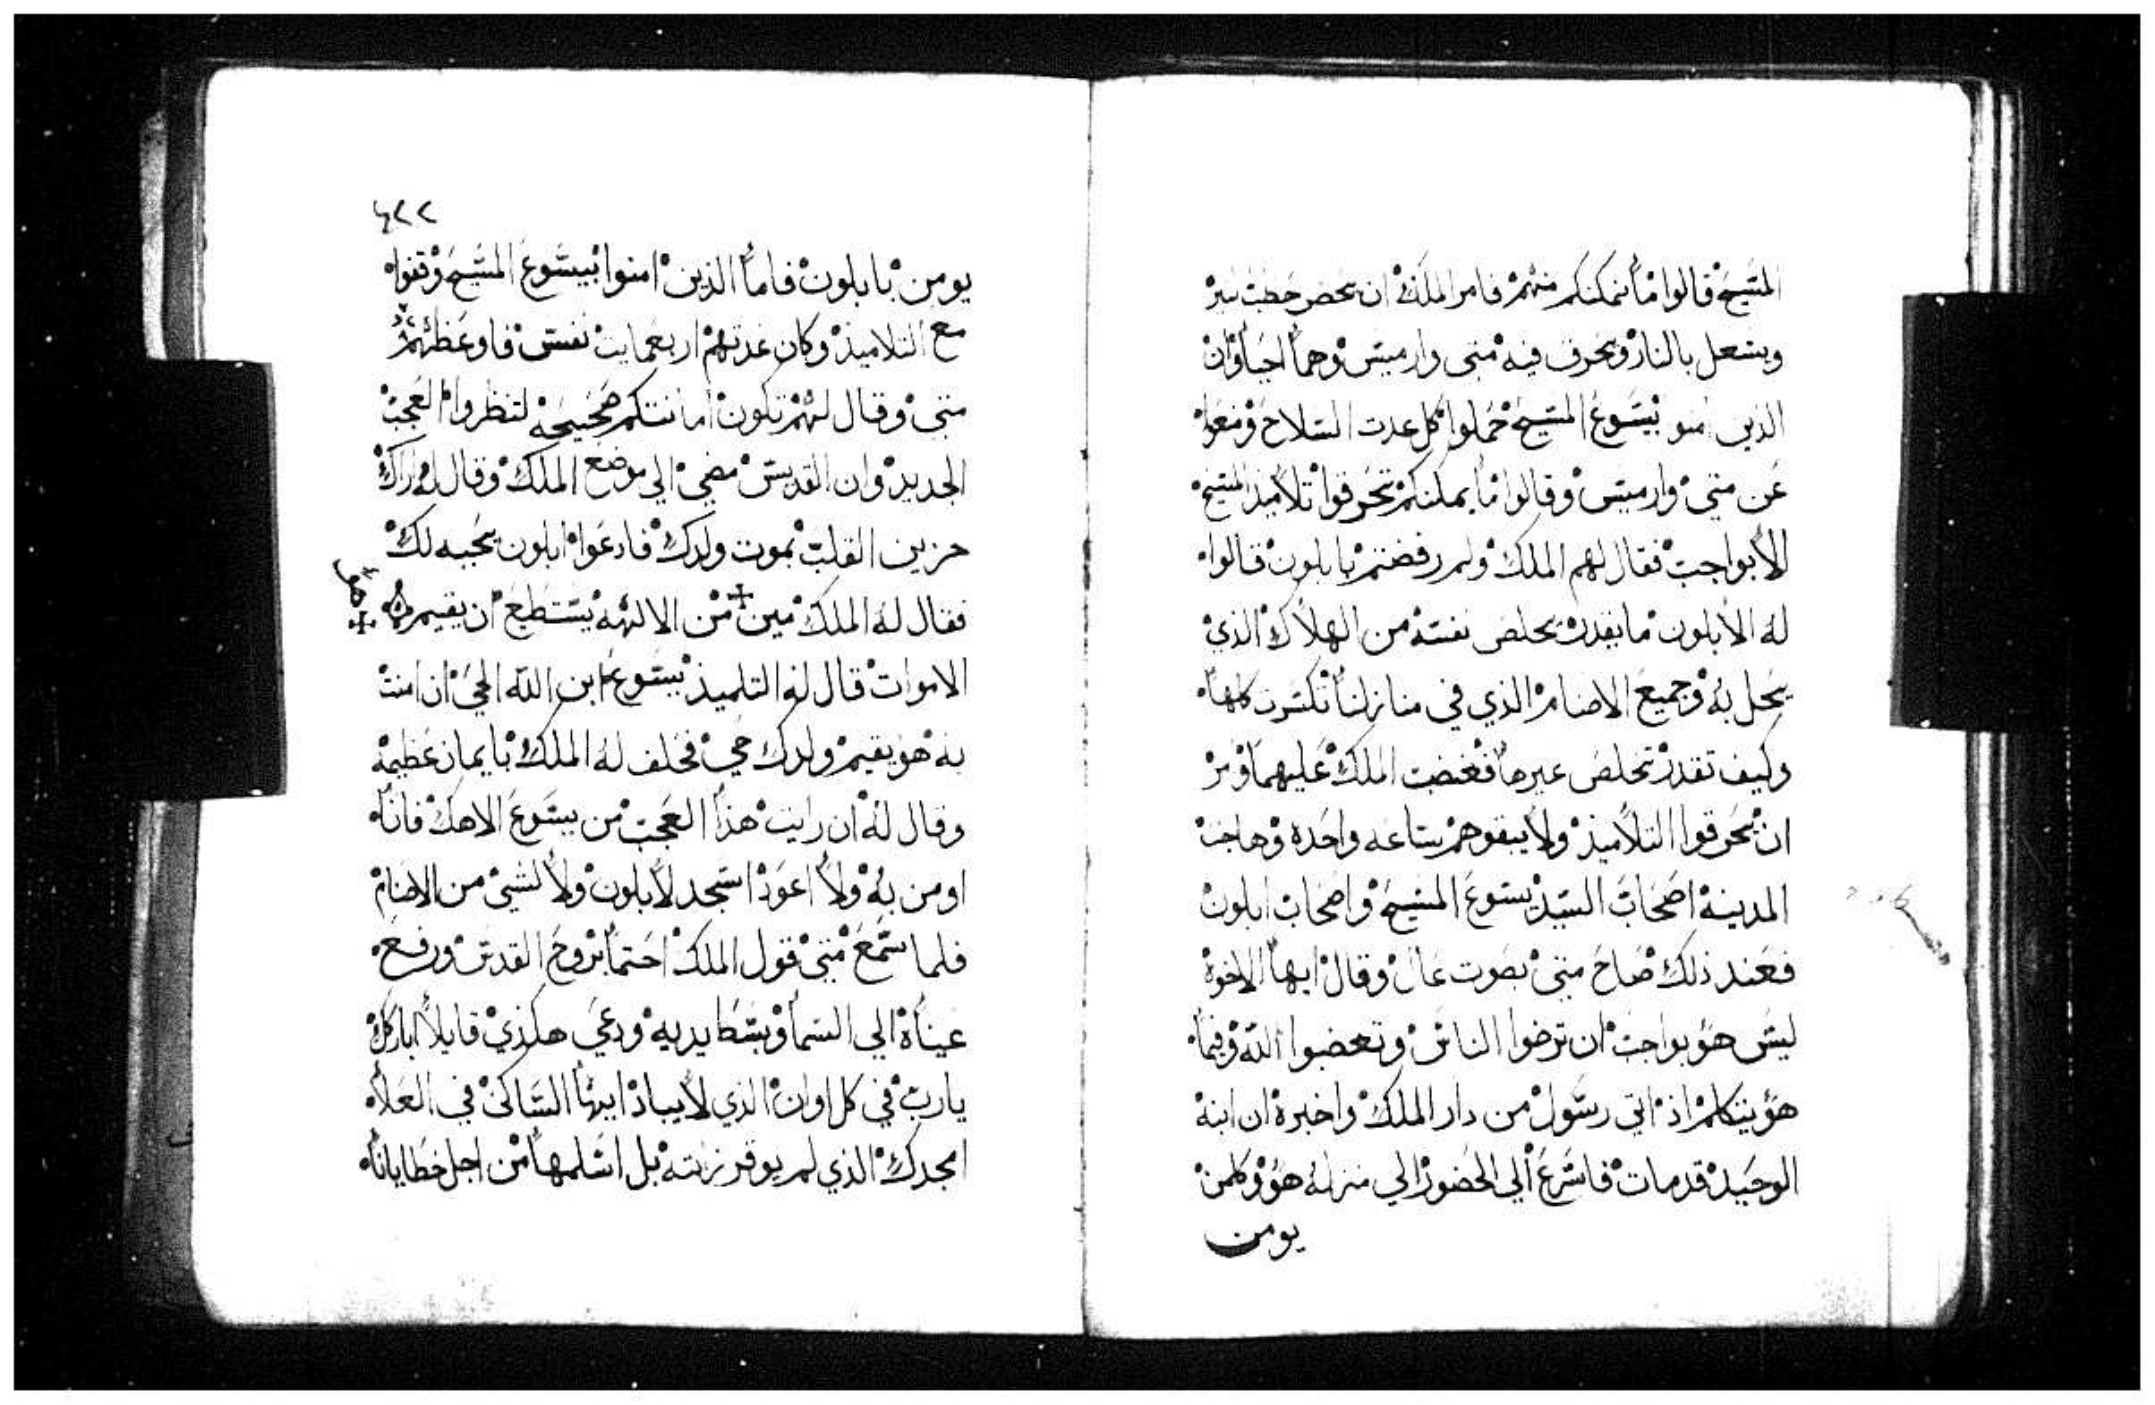 المسيح قالوا ما نمكنكم منهم فامر الملك ان يحضر حطب كتير
ويشعل بالنار ويحرق فيه متى وارميس وهما احيا وان
الذين امنو بيسوع المسيح حملوا كل عدت السلاح ومنعوا
عن متي وارميس وقالوا ما يمكنكم تحرقوا تلاميذ المسيح
الابواجب فقال لهم الملك ولم رفضتم بابلون قالوا
له الابلون ما يقدر يخلص نفسه من الهلاك الذي
يحل به وجميع الاصنام الذي في منازلنا تكسرت كلها
وكيف تقدر تخلص غيرها فغضب الملك عليهما وامر
ان يحرقوا التلاميذ ولا يبقوهم ساعه واحده وهاجت
المدينة اصحاب السيد يسوع المسيح واصحاب ابلون
فعند ذلك صاح متى بصوت عال وقال ايها الاخوة
ليس هو بواجب ان ترضوا الناس وتغضبوا الله وفيما
هو يتكلم اذ اتى رسول من دار الملك واخبره ان ابنه
الوحيد قد مات فاسرع الي الحضور الي منزله هو وكلمن
يومن
٤٢٢
يومن بابلون فاما الذين امنوا بيسوع المسيح وقفوا
مع التلاميذ وكان عدتهم اربعمايت نفس فاوعظهم
متى وقال لهم تكون امانتكم صحيحه لتنظروا العجب
الجديد وان القديس مضي الي موضع الملك وقال له اراك
حزين القلب بموت ولدك فادعوا ابلون يحييه لك
فقال له الملك مين من الالهه يستطيع ان يقيم
الاموات قال له التلميذ يسوع ابن الله الحي ان امنت
به هو يقيم ولدك حي فحلف له الملك بايمان عظيمه
وقال له ان رايت هذا العجب من يسوع الاهك فانا
اومن به ولا اعود اسجد لابلون ولا لشي من الاصنام
فلما سمع متى قول الملك احتما بروح القدس ورفع
عيناه الي السما وبسط يديه ودعي هكذي قايلا اباركك
يارب في كل اوان الذي لا يباد ايها الساكن في العلاه
امجدك الذي لم يوقر بل اسلمها من اجل خطايانا